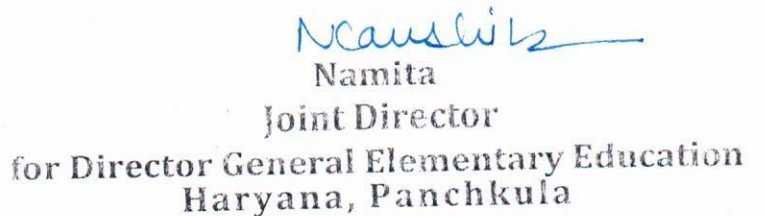 NKaushik
Namita
Joint Director
for Director General Elementary Education
Haryana, Panchkula